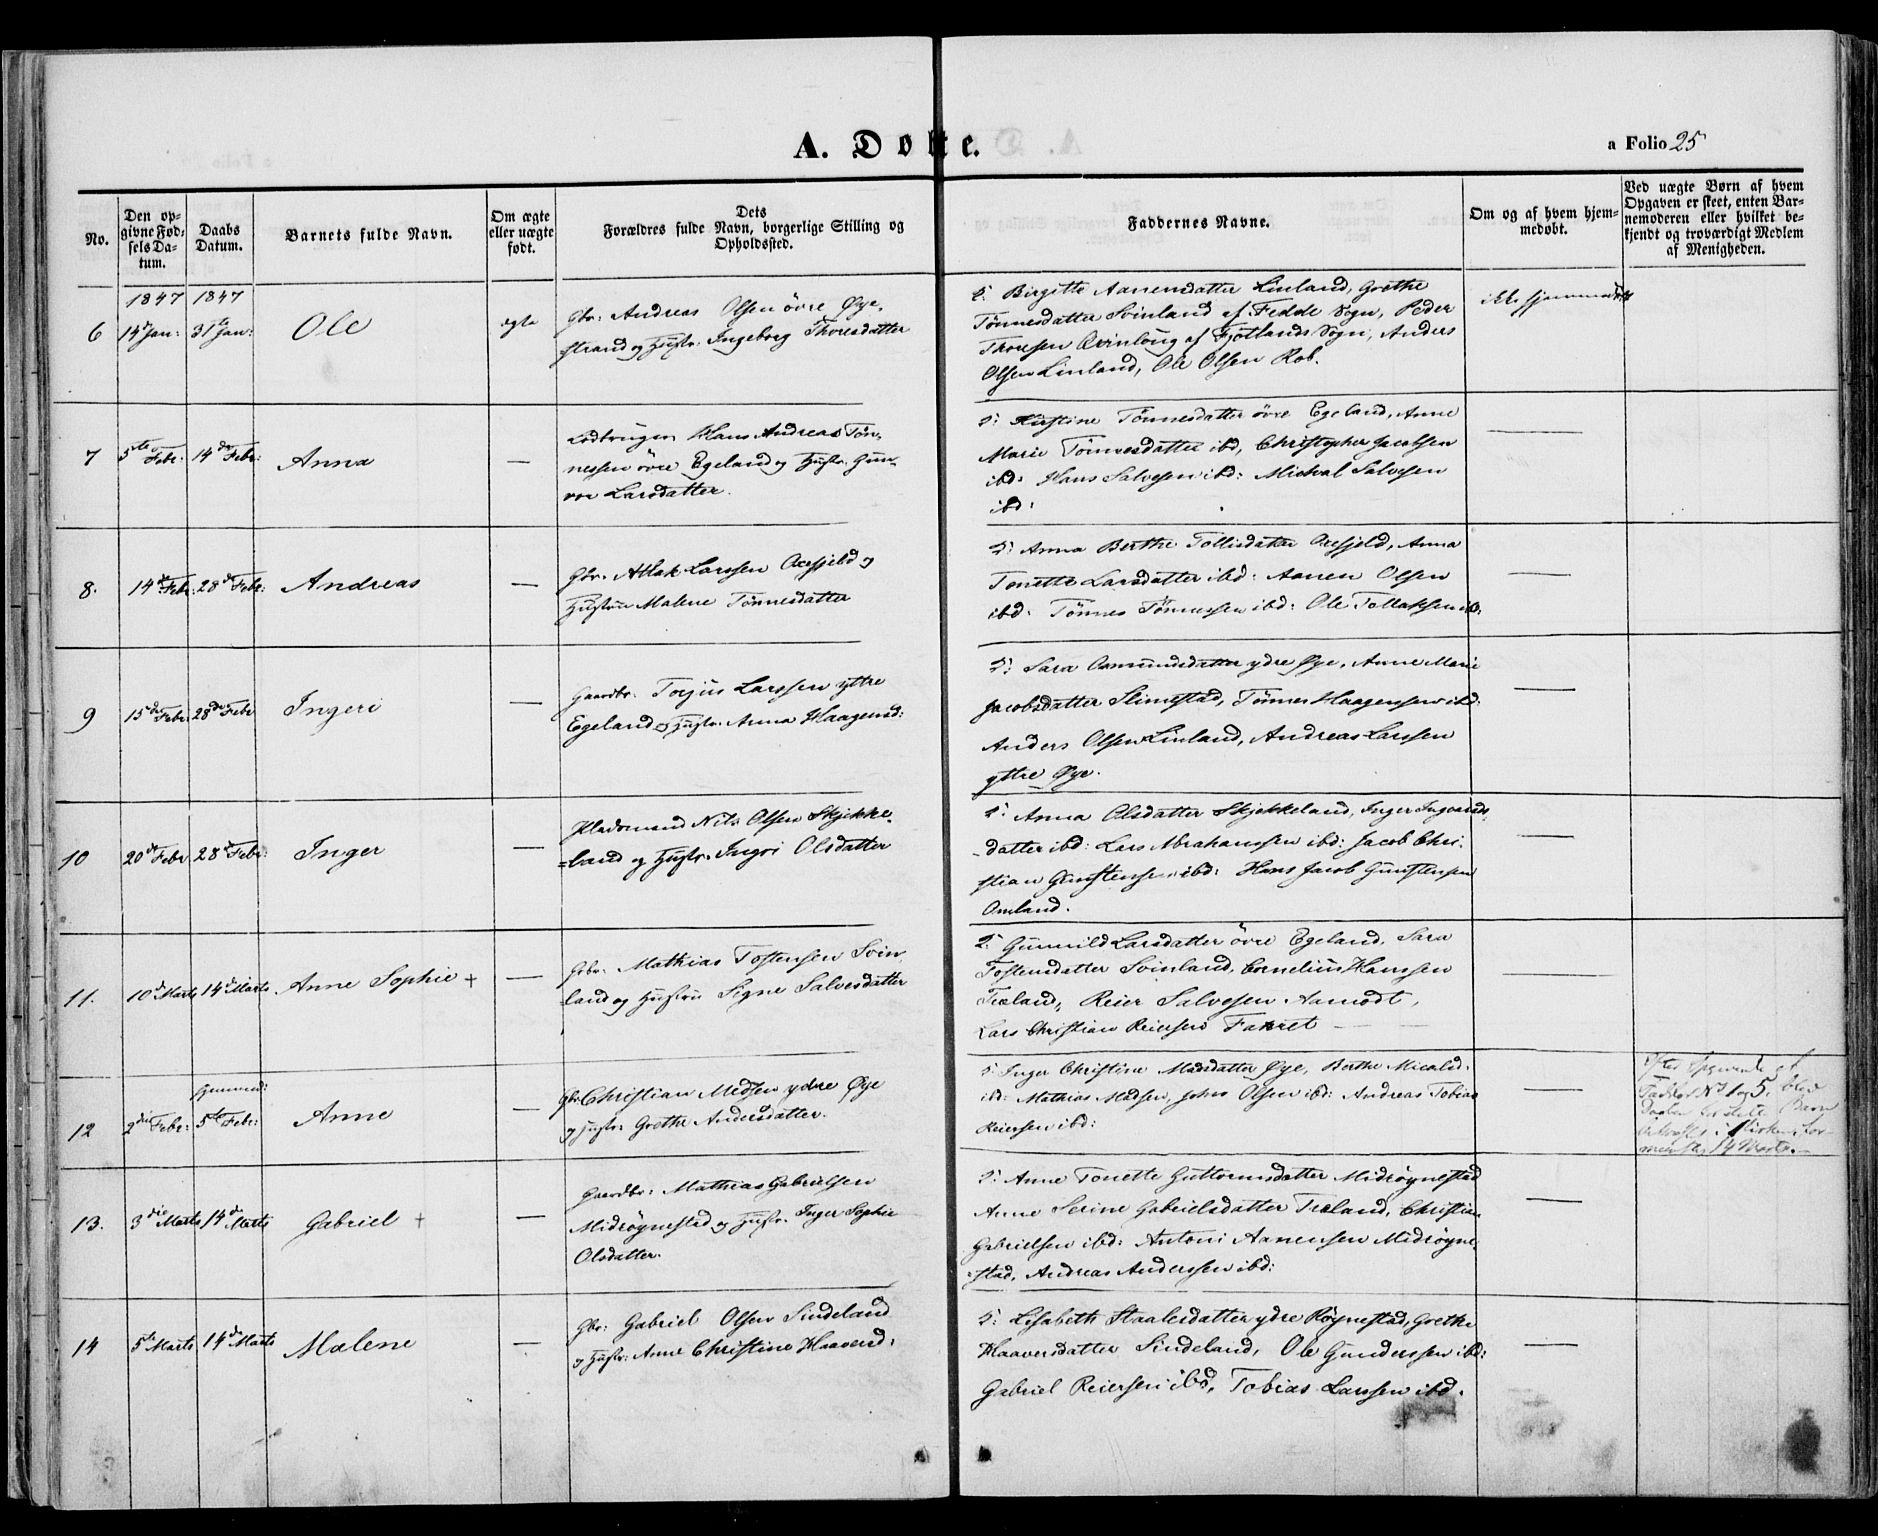 A. Døbte.
a Folio 25
No.
Den op-
givne Fød-
sels Da-
tum.
Daabs
Datum.
Barnets fulde Navn.
Om ægte
eller uægte
født.
Dets
Forældres fulde Navn, borgerlige Stilling og
Opholdssted.
Faddernes Navne.
Om og af hvem hjem-
medøbt.
Ved uægte Børn af hvem
Opgaven er skeet, enten Bar-
nemoderen eller hvilket be-
kjendt og troværdigt Medlem
af Menigheden.
1847 1847
6 14 Jan: 31te Jan: Ole ægte
Gbr: Andreas Olsen övre Øye,
strand og Hustr. Ingeborg Thoresdatter
Birgitte Aanensdatter Linland, Grethe
Tönnesdatter Svinland af Fedde Sogn, Peder
Thoresen Qvinlöug af Fjotlands Sogn, Anders
Olsen Linland, Ole Olsen Rob.
ikke hjemmedøbt
7 5te Febr: 14de Febr: Anna —
Lodbruger Hans Andreas Tön-
nessen övre Egeland og Hustr. Gun-
vor Larsdatter.
Kirstine Tönnesdatter övre Egeland, Anne
Marie Tönnesdatter ibd, Christopher Jacobsen
ibd: Hans Salvesen ibd: Michal Salvesen
ibd:
—
8. 14de Febr: 28de Febr: Andreas —
Gbr. Atlak Larssen Oxefjeld og
Hustru Malene Tönnesdatter
Anna Berthe Tollisdatter Oxefjeld, Anna
Tonette Larsdatter ibd: Aanen Olsen
ibd: Tönnes Tönnessen ibd: Ole Tollaksen ibd:
—
9 15de Febr: 28de Febr Ingeri —
Gaardbr. Torjus Larssen yttre
Egeland og Hustr. Anna Haagensd:
Sara Aamundsdatter ydre Øye, Anne Marie
Jacobsdatter Slimestad, Tönnes Haagensen ibd:
Anders Olsen Linland, Andreas Larssen
yttre Øye.
—
10 20de Febr 28de Febr: Inger —
Pladsmand Nils Olsen Skjekke-
=land og Hustr. Ingri Olsdatter
Anna Olsdatter Skjekkeland, Inger Ingvards
-datter ibd: Lars Abrahamssen ibd: Jacob Chri-
stian Gunstensen ibd: Hans Jacob Gunstensen
Omland.
—
11. 10de Marts 14de Marts Anne Sophie + —
Gbr. Mathias Tostensen Svin-
land og Hustru Signe Salvesdatter
Gunnild Larsdatter övre Egeland, Sara
Tostensdatter Svinland, Cornelius Hanssen
Træland, Reier Salvesen Aamodt,
Lars Christian Reiersen Fakret —
—
12 2die Febr: 5te Febr: Anne —
Gbr Christian Madsen ydre Øye
og Hustr: Grethe Andersdatter.
Inger Christine Madsdatter Øye, Berthe Micalsd:
ibd: Mathias Madsen, John Olsen ibd: Andreas Tobias
Reiersen ibd:
—
13. 3die Marts 14de Marts Gabriel + —
Gaardbr: Mathias Gabrielsen
Midröynestad og Hustr. Inger Sophie
Olsdatter.
Anne Tonette Guttormsdatter Midröynestad
Anne Serine Gabrielsdatter Træland, Christian
Gabrielsen ibd: Antoni Aanensen Midröyne-
stad, Andreas Anderssen ibd:
—
14 5te Marts 14de Marts Malene —
Gbr: Gabriel Olsen Sindeland
og Hustr: Anne Christine Haaversd:
Lisabeth Staalesdatter ydre Röynestad, Grethe
Haaversdatter Sindeland, Ole Gunderssen ibd:
Gabriel Reiersen ibd, Tobias Larssen ibd.
—